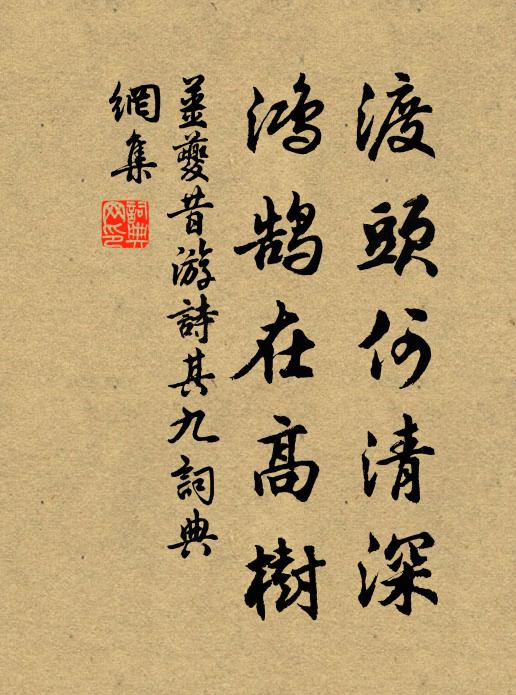 渡頭何清深
鴻鵠在高樹
姜夔昔游詩其九詞典
網集
詞典
網印